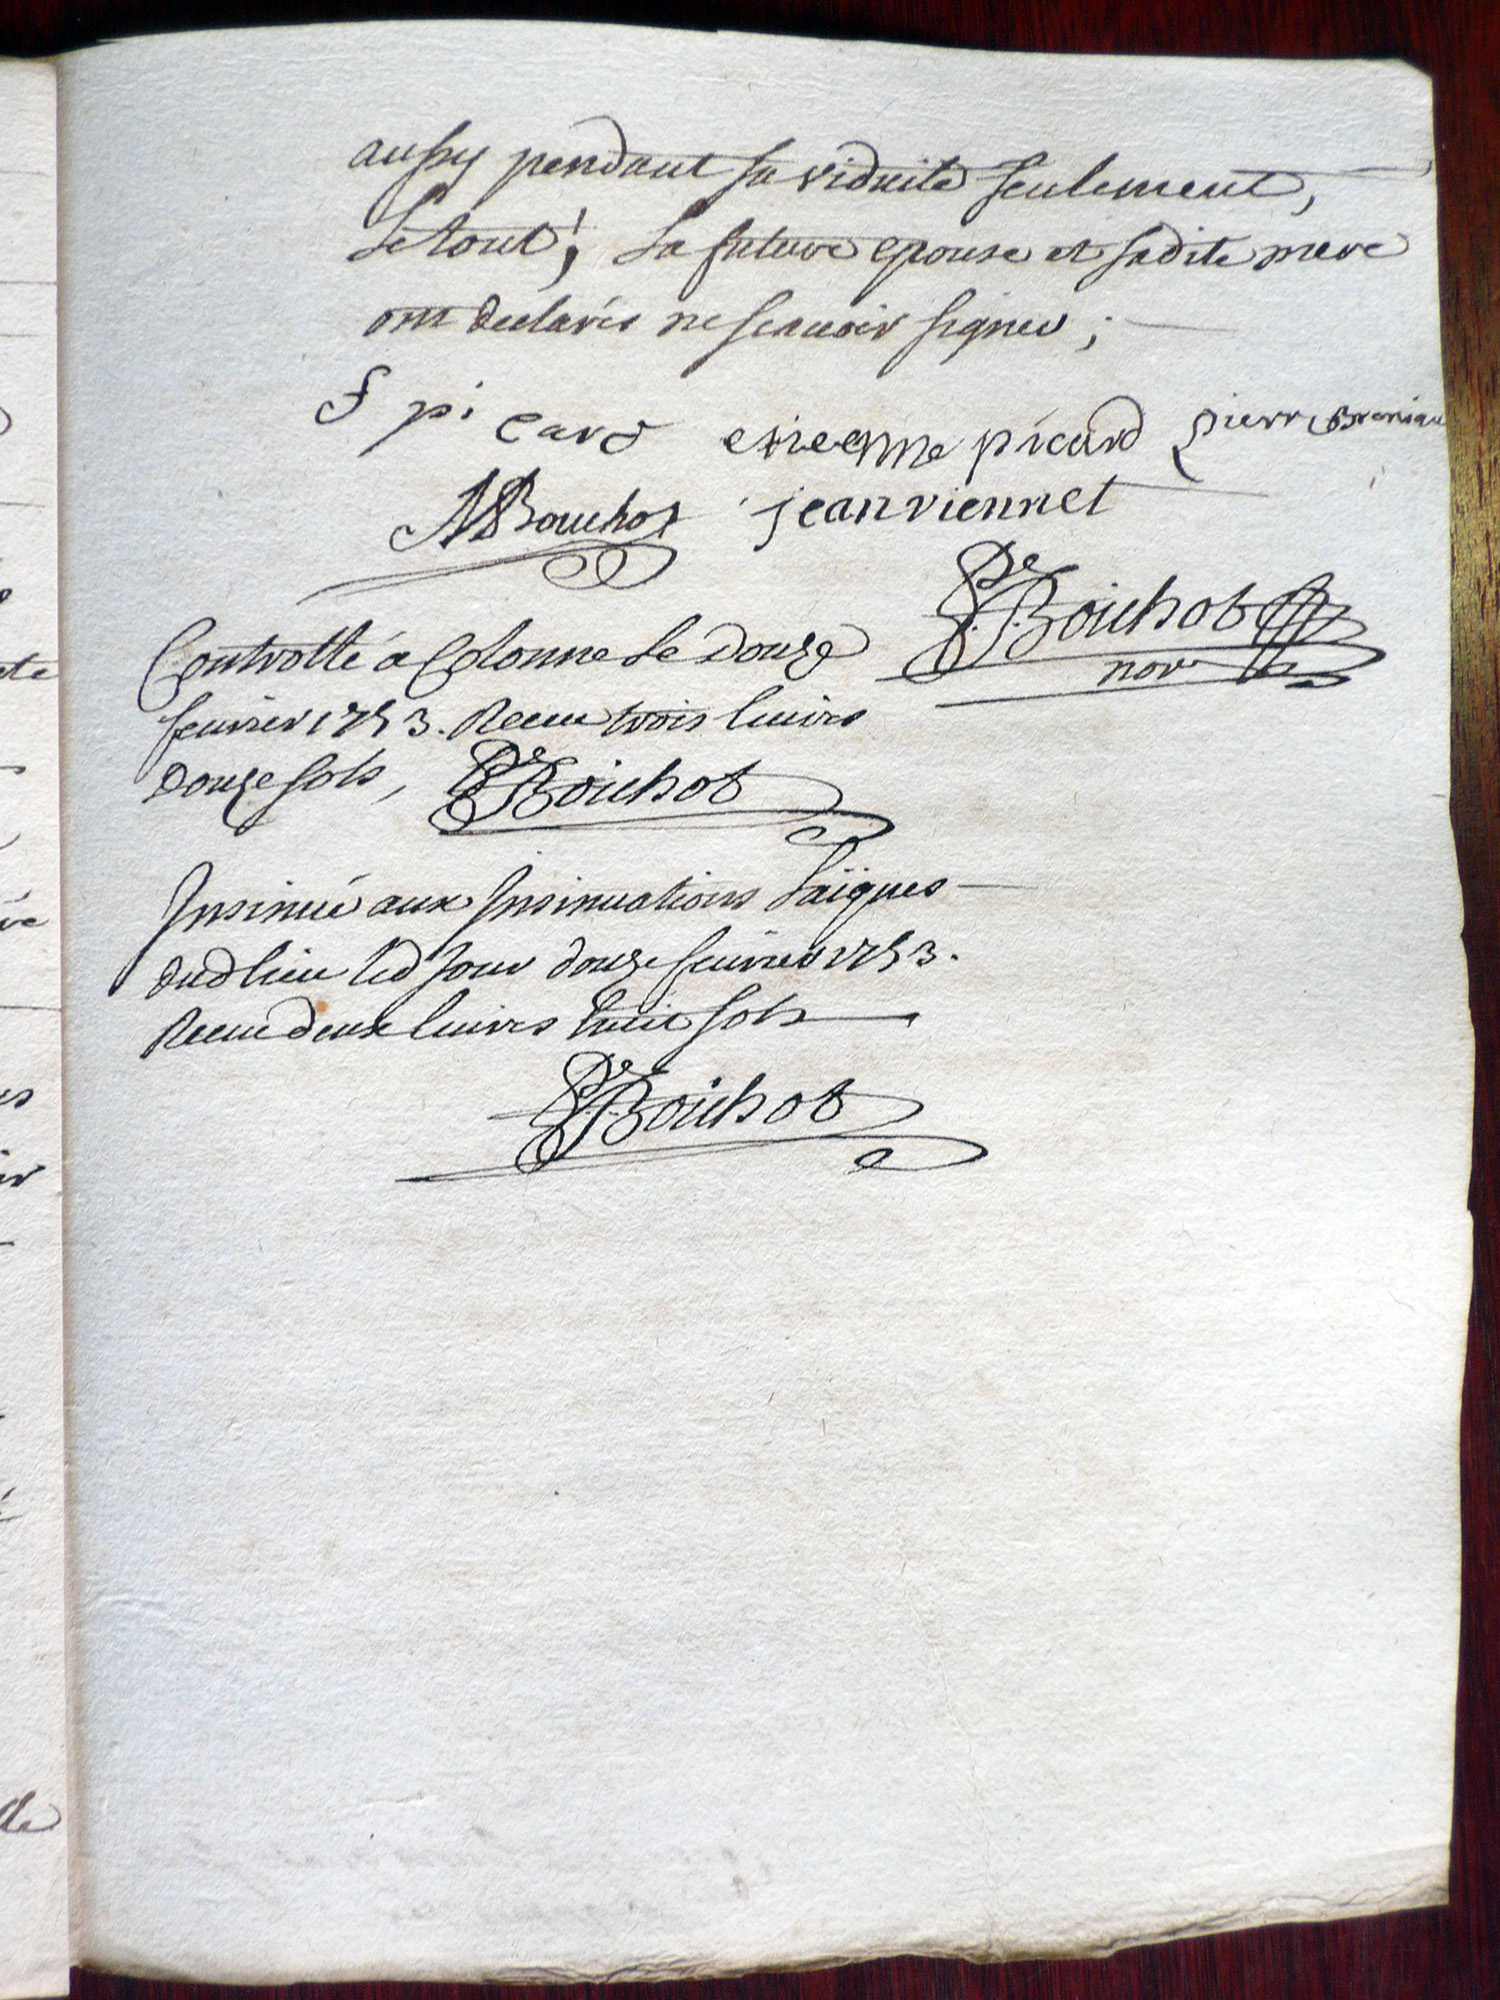 aussy pendant sa viduité seulement,
Le tout; La future epouse et sadite mere
ont declarés ne scavoir signer;
f picard etienne picard pierr
A Bouchot jean viennet
Boichot
nore
Controllé a Colonne Le douze
fevrier 1753. Receu trois livres
douze sols, Boichot
Insinué aux Insinuations Laïques
dud lieu led jour douze fevrier 1753.
Receu deux livres huit sols
Boichot